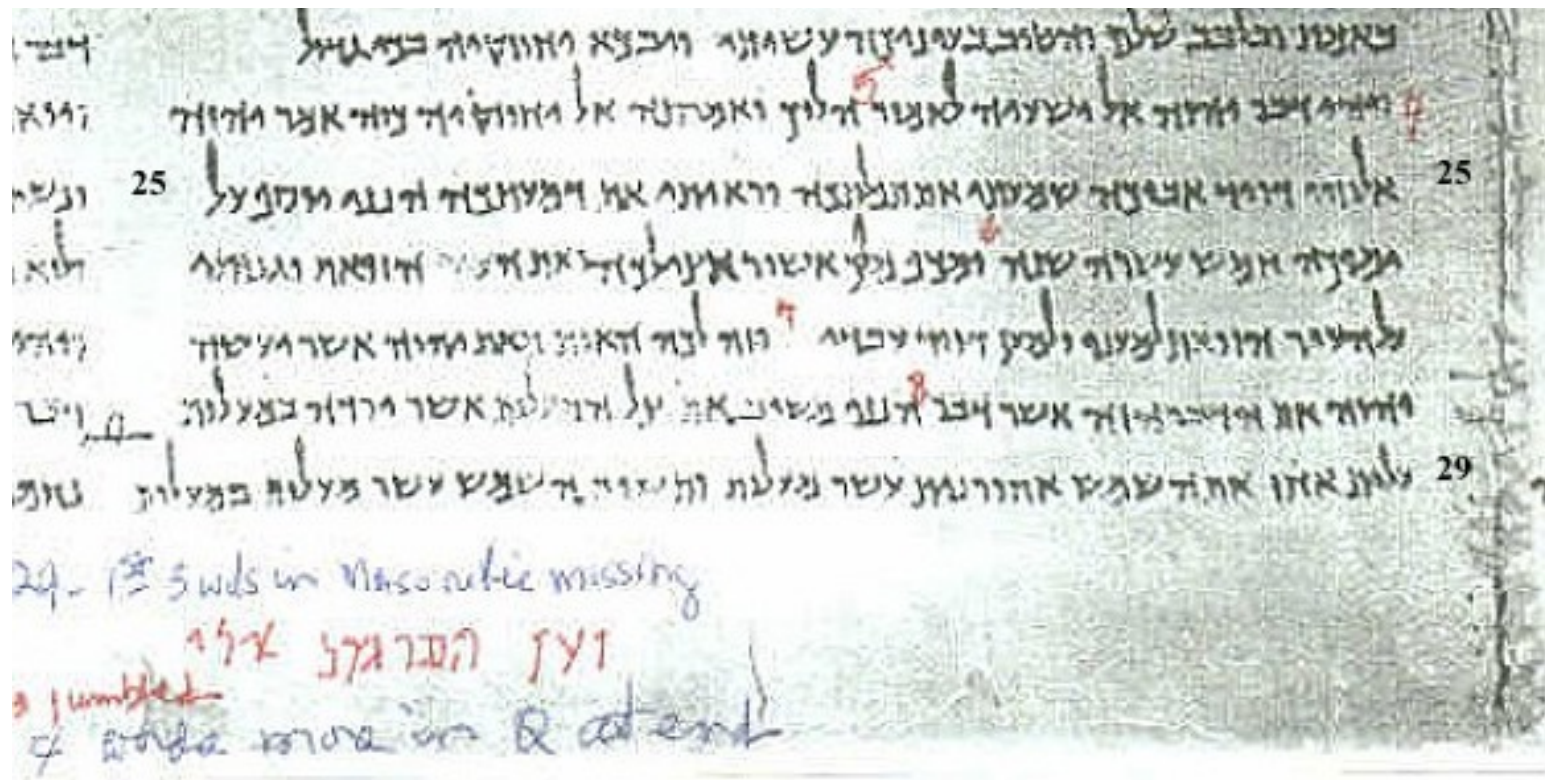 באמת ובלבב שלם והטוב בעיניך עשיתי ויבכא יחוזקיה בכי גדול
4 ויהי דבר יהוה אל ישעיה לאמור 5 הלוך ואמרתה אל יחוזקיה כוה אמר יהוה
25 אלוהי דויד אביכה שמעתי את תפלתכה וראיתי את דמעתכה הנני יוסף על 25
ימיכה חמש עשרה שנה 6 ומכף מלך אשור אצילכה ואת העיר הזואת וגנותי
על העיר הזואת למעני ולמען דויד עבדי 7 וזה לכה האות מאת יהוה אשר יעשה
יהוה את הדבר הזה אשר דבר 8 הנני משיב את צל המעלות אשר ירדה במעלות
29 עלית אחז את השמש אחורנית עשר מעלות ותשוב השמש עשר מעלות במעלות
24 - 1st 3 wds in Masoretic missing
jumbled
more in Q at end